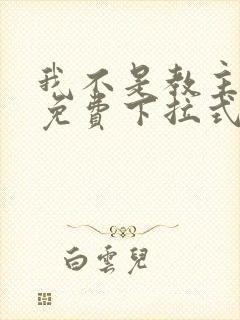 我不是教主
免費下拉式
白雲兒